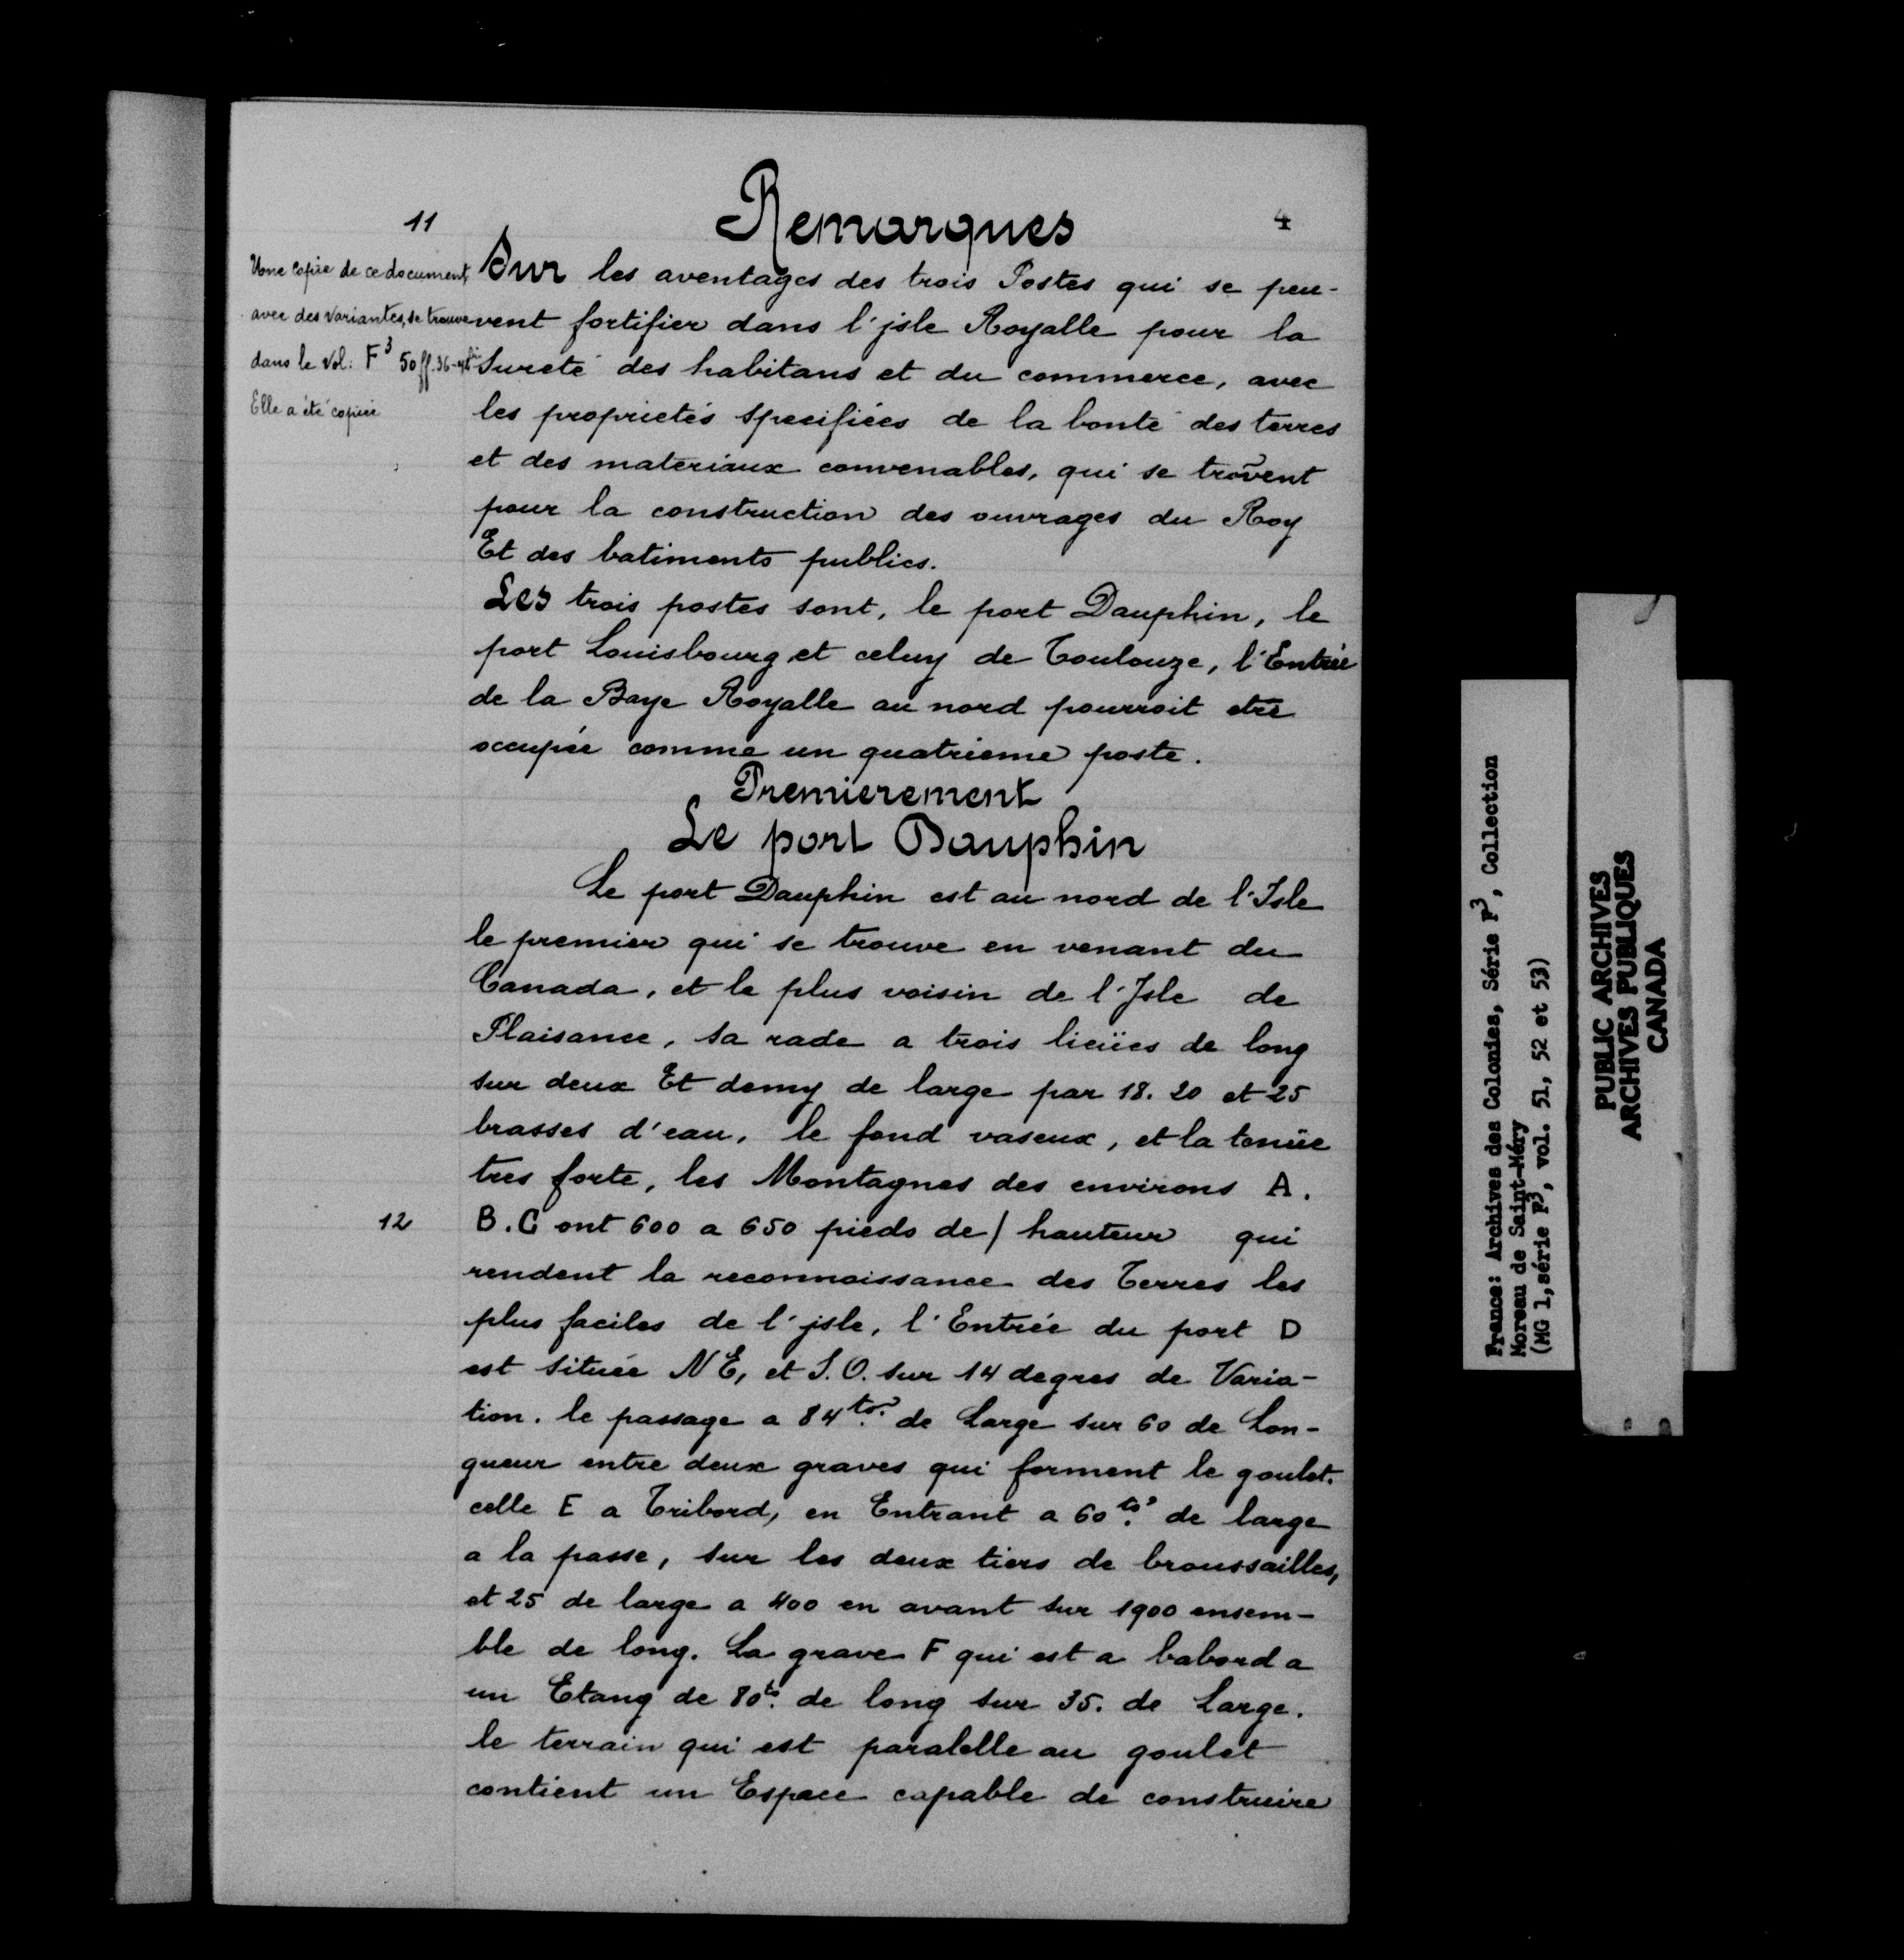 11
Remarques
4
Une copie de ce document,
avec des variantes, se trouve
dans le vol: F³ 50 ff. 36-
Elle a été copiée
Sur les aventages des trois Postes qui se peu-
vent fortifier dans l'jsle Royalle pour la
Sureté des habitans et du commerce, avec
les proprietés specifiées de la bonté des terres
et des materiaux convenables, qui se trouvent
pour la construction des ouvrages du Roy
Et des batiments publics.
Les trois postes sont, le port Dauphin, le
port Louisbourg et celuy de Toulouze, l'Entrée
de la Baye Royalle au nord pourroit etre
occupée comme un quatrieme poste.
Premierement
Le port Dauphin
Le port Dauphin est au nord de l'Isle
le premier qui se trouve en venant du
Canada, et le plus voisin de l'Jsle de
Plaisance, sa rade a trois lieües de long
sur deux Et demy de large par 18. 20 et 25
brasses d'eau, le fond vaseux, et la tenüe
tres forte, les Montagnes des environs A.
12
B. C ont 600 a 650 pieds de / hauteur qui
rendent la reconnaissance des Terres les
plus faciles de l'jsle, l'Entrée du port D
est située N E, et S. O. sur 14 degres de Varia-
tion. le passage a 84 to.s de Large sur 60 de Lon-
gueur entre deux graves qui forment le goulet.
celle E a Tribord, en Entrant a 60 to.s de large
a la passe, sur les deux tiers de broussailles,
et 25 de large a 400 en avant sur 1900 ensem-
ble de long. La grave F qui est a babord a
un Etang de 80 to. de long sur 35. de Large.
le terrain qui est paralelle au goulet
contient un Espace capable de construire
France: Archives des Colonies, Série F³, Collection
Moreau de Saint-Méry
(MG 1, série F³, vol. 51, 52 et 53)
PUBLIC ARCHIVES
ARCHIVES PUBLIQUES
CANADA